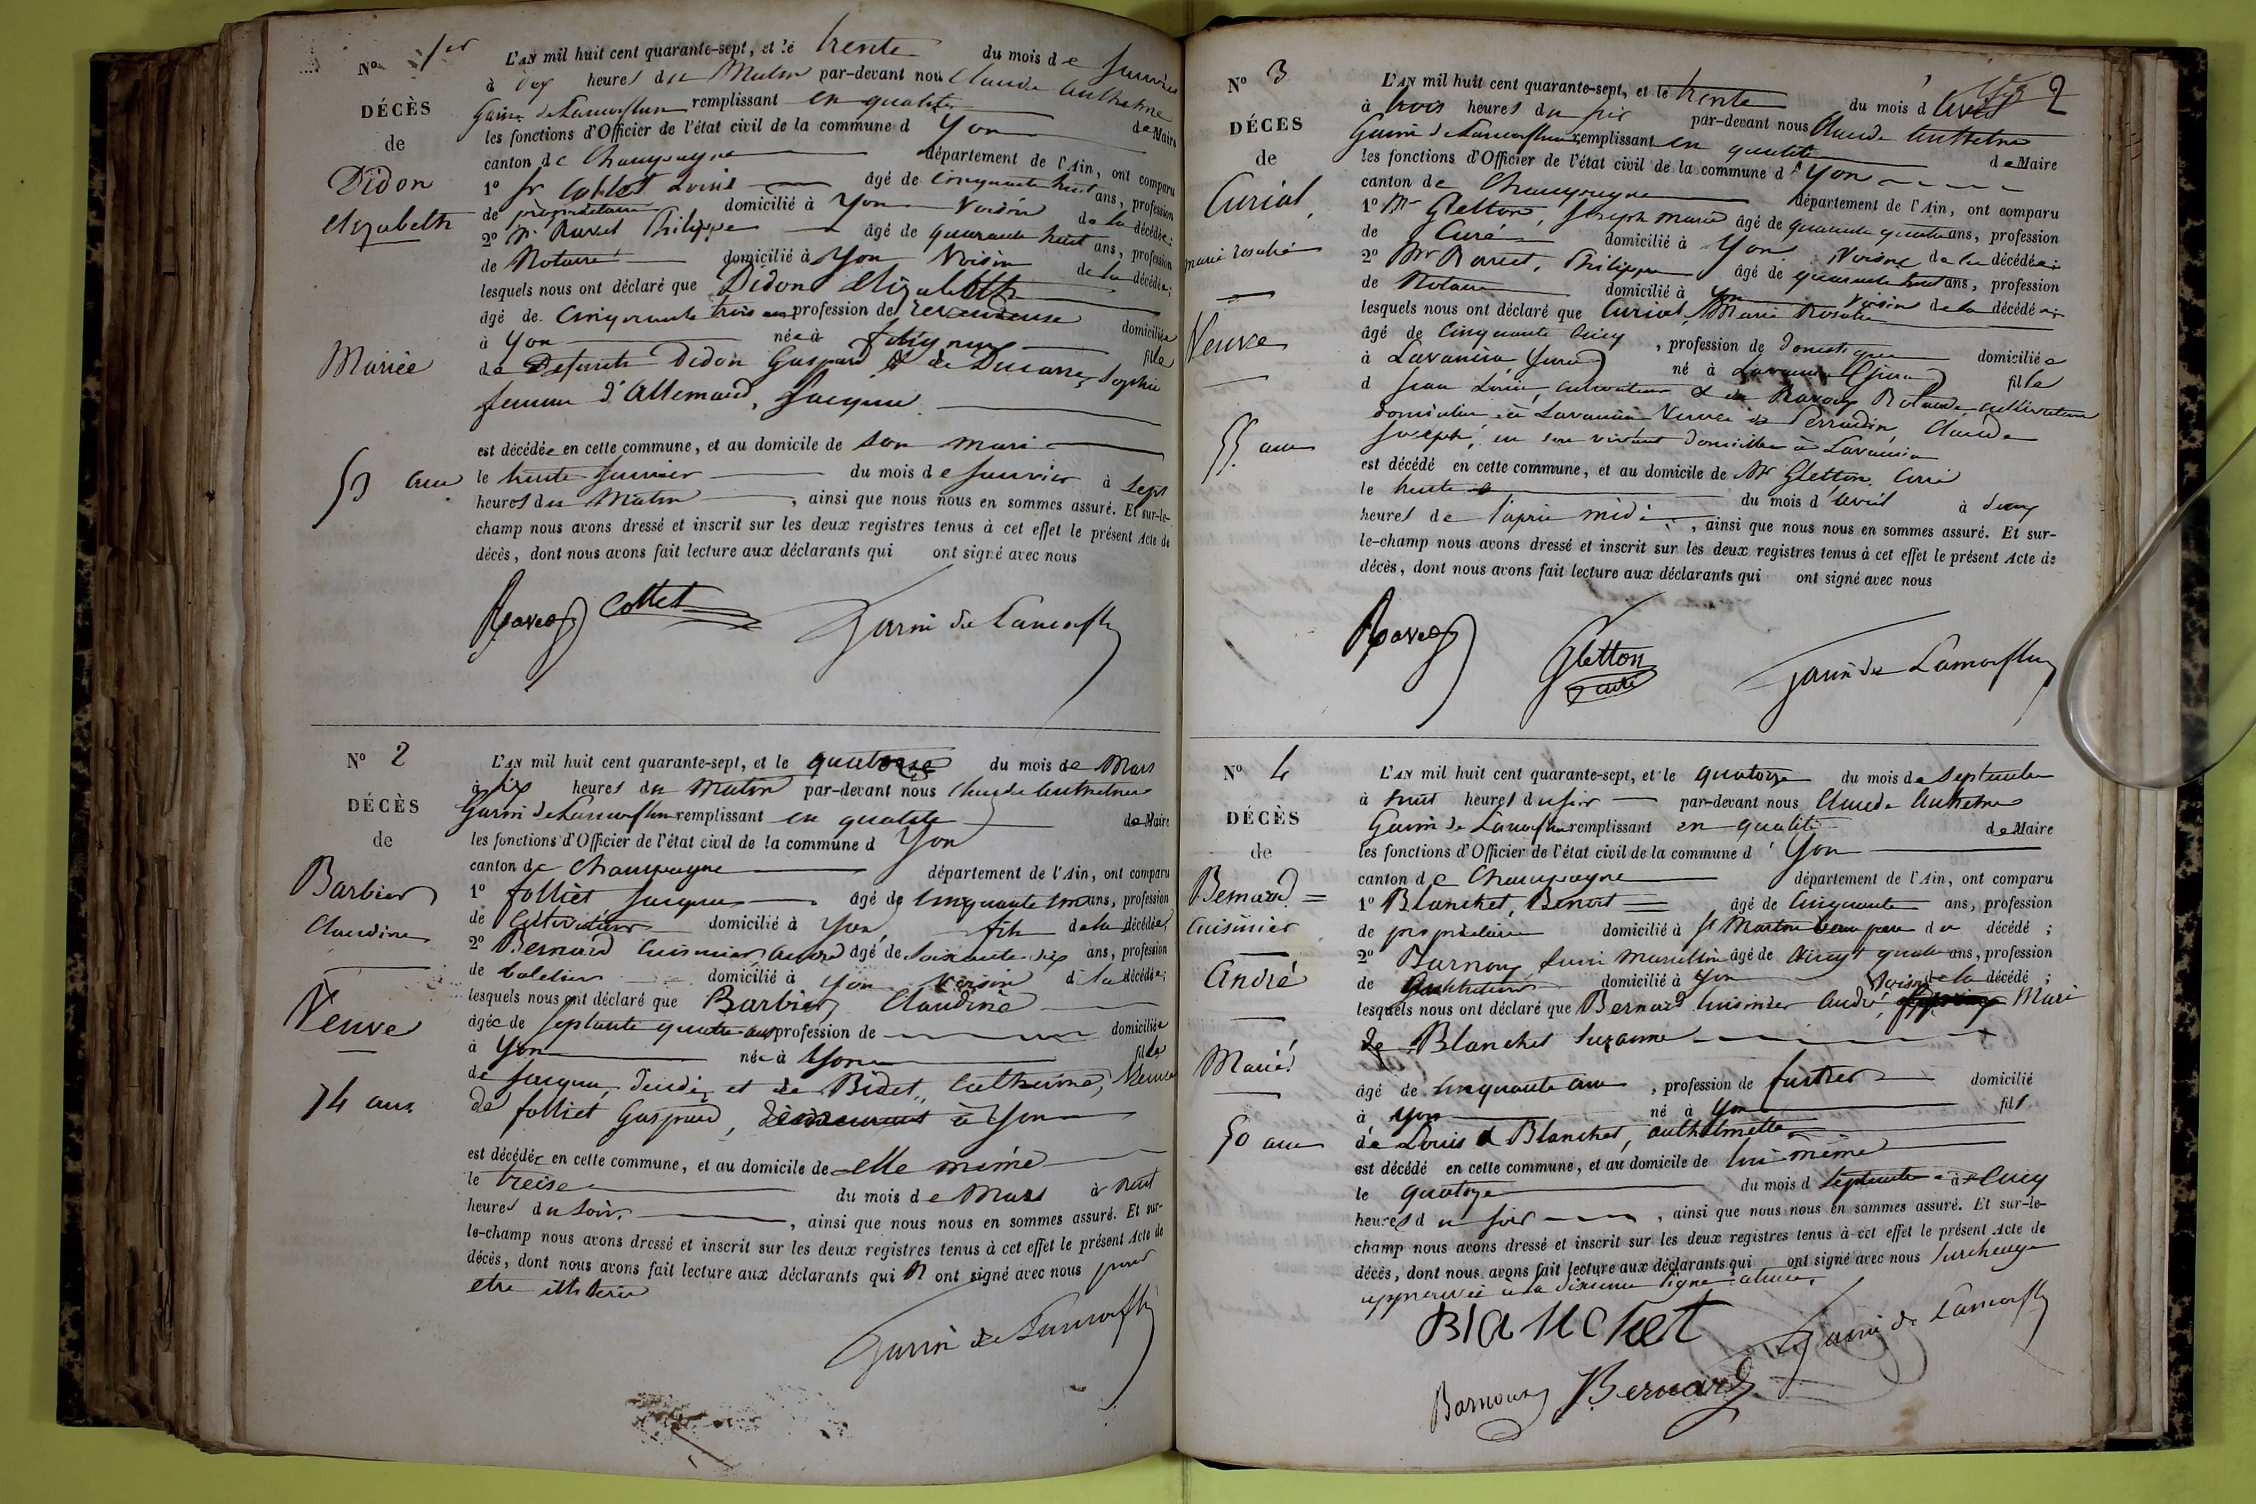 N° 1er
DÉCÈS
de
Didon
Elizabeth
Mariée
53 ans
L'AN mil huit cent quarante-sept, et le trente du mois de Janvier
à dix heures du Matin par-devant nous Claude Anthelme
Garin de Lamorflan remplissant en qualité de Maire
les fonctions d'Officier de l'état civil de la commune d Yon
canton de Champagne département de l'Ain, ont comparu
1° Sr Collet Louis âgé de cinquante huit ans, profession
de propriétaire domicilié à Yon Voisin de la décédée;
2° Mr Ravet Philippe âgé de quarante huit ans, profession
de Notaire domicilié à Yon Voisin de la décédée;
lesquels nous ont déclaré que Didon Elizabeth
âgé de cinquante trois ans profession de revendeuse domiciliée
à Yon née à fille
de Defunts Didon Gaspard et de Ducarre, Sophie
femme d'Allemand, Jacques
est décédée en cette commune, et au domicile de son mari
le trente Janvier du mois de Janvier à sept
heures du Matin, ainsi que nous nous en sommes assuré. Et sur-le-
champ nous avons dressé et inscrit sur les deux registres tenus à cet effet le présent Acte de
décès, dont nous avons fait lecture aux déclarants qui ont signé avec nous
Ravet Collet Garin de Lamorflan
N° 2
DÉCÈS
de
Barbier
Claudine
Veuve
74 ans
L'AN mil huit cent quarante-sept, et le quatorze du mois de Mars
à six heures du Matin par-devant nous Claude Anthelme
Garin de Lamorflan remplissant en qualité de Maire
les fonctions d'Officier de l'état civil de la commune d Yon
canton de Champagne département de l'Ain, ont comparu
1° Folliet Jacques âgé de cinquante ans, profession
de Cultivateur domicilié à Yon, fils de la décédée;
2° Bernard Cuisinier André âgé de soixante dix ans, profession
de domicilié à Yon Voisin de la décédée;
lesquels nous ont déclaré que Barbier Claudine
âgée de septante quatre ans profession de domiciliée
à Yon née à Yon fille
de Jacques, et de Bidet, Catherine, Veuve
de folliet Gaspard, demeurant à Yon
est décédée en cette commune, et au domicile de elle même
le treise du mois de Mars à huit
heures du soir, ainsi que nous nous en sommes assuré. Et sur-
le-champ nous avons dressé et inscrit sur les deux registres tenus à cet effet le présent Acte de
décès, dont nous avons fait lecture aux déclarants qui n ont signé avec nous pour
etre illiterés
Garin de Lamorflan
2
N° 3
DÉCÈS
de
Curial
Marie Rosalie
Veuve
55 ans
L'AN mil huit cent quarante-sept, et le trente du mois d'avril
à trois heures du soir par-devant nous Claude Anthelme
Garin de Lamorflan remplissant en qualité de Maire
les fonctions d'Officier de l'état civil de la commune d'Yon
canton de Champagne département de l'Ain, ont comparu
1° Mr Gletton, Joseph Marie âgé de quarante quatre ans, profession
de Curé domicilié à Yon Voisin de la décédée;
2° Mr Ravet, Philippe âgé de quarante huit ans, profession
de Notaire domicilié à Yon Voisin de la décédée;
lesquels nous ont déclaré que Curial, Marie Rosalie
âgé de cinquante cinq, profession de domestique domiciliée
à Lavancia (Jura) né à Lavancia (Jura) fille
d Jean Louis, cultivateur et de cultivateurs
domiciliés à Lavancia Veuve de Perraudin Claude
Joseph, en son vivant domicilié à Lavancia
est décédé en cette commune, et au domicile de Mr Gletton, Curé
le trente du mois d'avril à deux
heures de l'après midi, ainsi que nous nous en sommes assuré. Et sur-
le-champ nous avons dressé et inscrit sur les deux registres tenus à cet effet le présent Acte de
décès, dont nous avons fait lecture aux déclarants qui ont signé avec nous
Ravet Gletton curé Garin de Lamorflan
N° 4
DÉCÈS
de
Bernard =
Cuisinier
André
Marié
50 ans
L'AN mil huit cent quarante-sept, et le quatorze du mois de Septembre
à huit heures du soir par-devant nous Claude Anthelme
Garin de Lamorflan remplissant en qualité de Maire
les fonctions d'Officier de l'état civil de la commune d'Yon
canton de Champagne département de l'Ain, ont comparu
1° Blanchet, Benoit âgé de cinquante ans, profession
de propriétaire domicilié à St Martin beau pere du décédé;
2° Barnoux, âgé de vingt quatre ans, profession
de Instituteur domicilié à Yon Voisin de la décédé;
lesquels nous ont déclaré que Bernard Cuisinier André, Mari
de Blanchet Suzanne
âgé de cinquante ans, profession de domicilié
à Yon né à Yon fils
de Louis & Blanchet, Anthelmette
est décédé en cette commune, et au domicile de lui même
le quatorze du mois d Septembre à cinq
heures du soir, ainsi que nous nous en sommes assuré. Et sur-le-
champ nous avons dressé et inscrit sur les deux registres tenus à cet effet le présent Acte de
décès, dont nous avons fait lecture aux déclarants qui ont signé avec nous surcharge
approuvée à la dixieme ligne
Blanchet Garin de Lamorflan
Barnoux Bernard